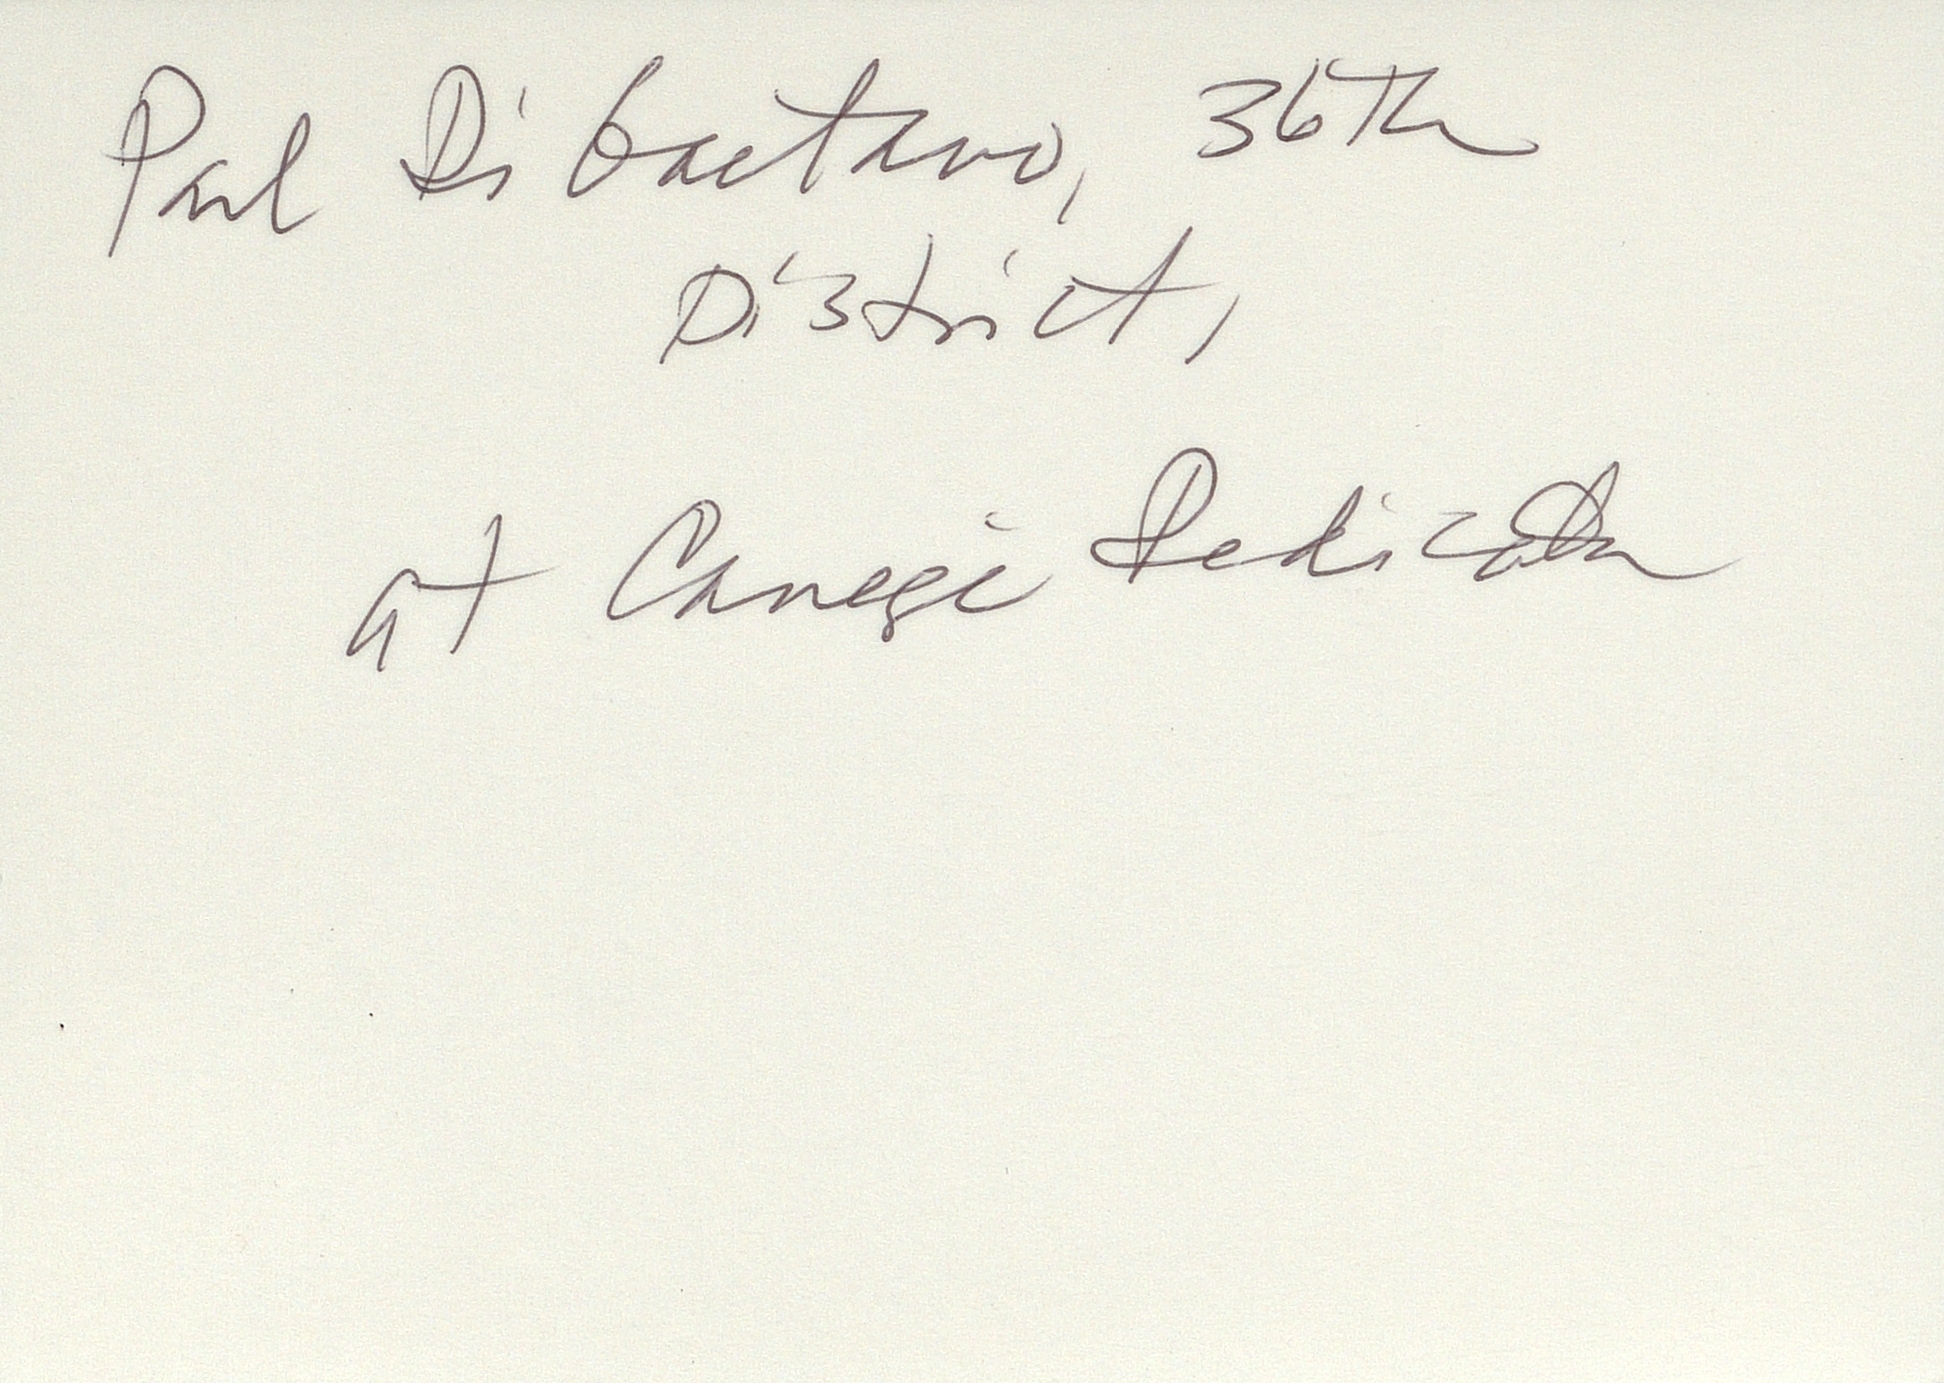 Paul Di Gaetano, 36Th
District,
at Canegie Dedication